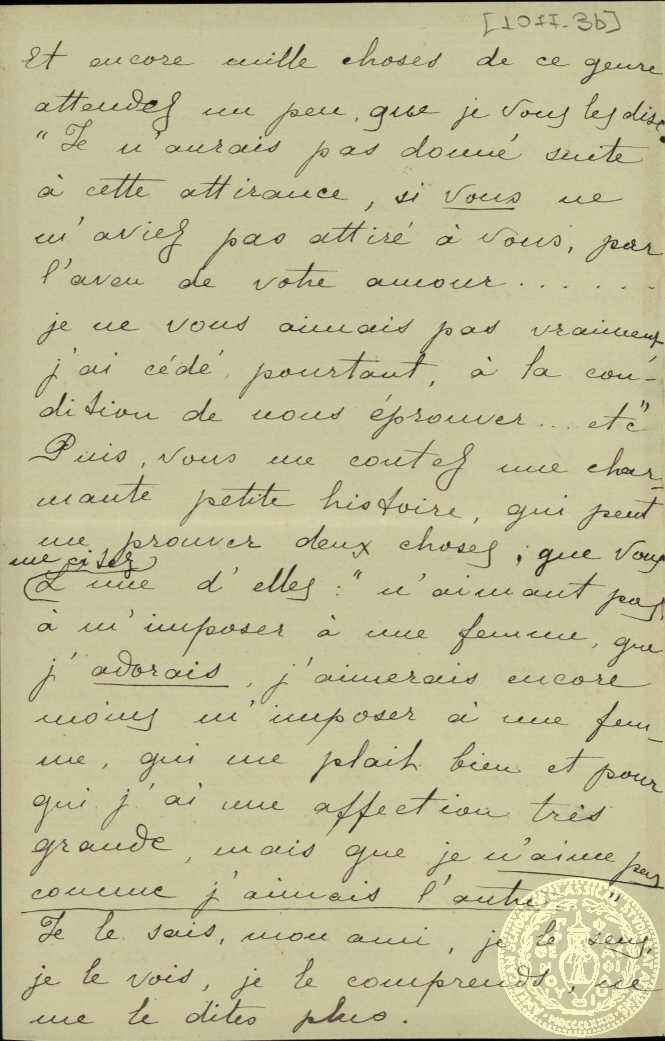 [1011-3b]
Et encore mille choses de ce genre
attendez un peu, que je vous les dise
"Je n'aurais pas donné suite
à cette attirance, si vous ne
m'aviez pas attiré à vous, par
l'aveu de votre amour.......
je ne vous aimais pas vraiment
j'ai cédé pourtant, à la con-
dition de nous éprouver... etc"
Puis, vous me contez une char-
mante petite histoire, qui peut
me prouver deux choses, que vous
me citez
L'une d'elles: "n'aimant pas,
à m'imposer à une femme, que
j'adorais, j'aimerais encore
moins m'imposer à une fem-
me, qui me plait bien et pour
qui j'ai une affection très
grande, mais que je n'aime pas
comme j'aimais l'autre"
Je le sais, mon ami, je le sens,
je le vois, je le comprends, ne
me le dites plus.